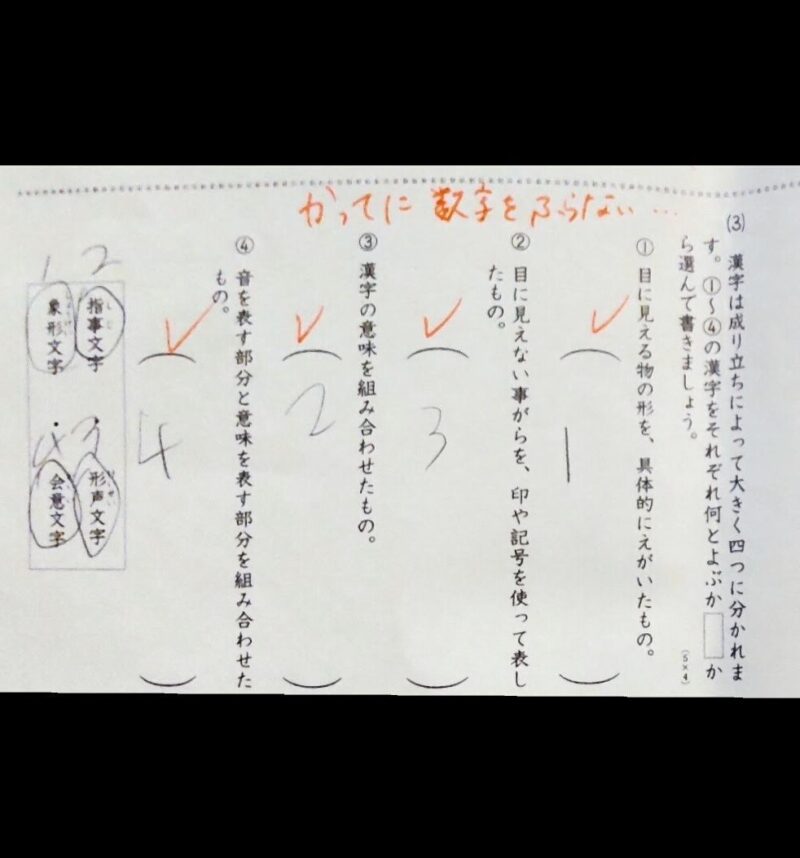 (3) 漢字は成り立ちによって大きく四つに分かれま
す。①〜④の漢字をそれぞれ何とよぶか か
ら選んで書きましょう。
(5×4)
かってに数字をふらない…
① 目に見える物の形を、具体的にえがいたもの。
( 1 )
② 目に見えない事がらを、印や記号を使って表し
たもの。
( 3 )
③ 漢字の意味を組み合わせたもの。
( 2 )
④ 音を表す部分と意味を表す部分を組み合わせた
もの。
( 4 )
2 指事文字 ・ 3 形声文字
1 象形文字 ・ 4 会意文字